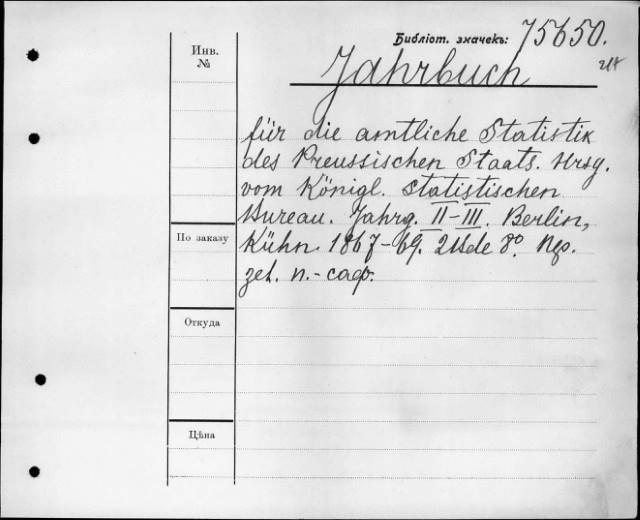 Библіот. значекъ: 75650.
Инв.
№
Jahrbuch
für die amtliche Statistik
des Preussischen Staats. Hrsg.
vom Königl. statistischen
Bureau. Jahrg. II–III. Berlin,
Kühn. 1867–69. 2 Bde 8°.
По заказу
Откуда
Цѣна